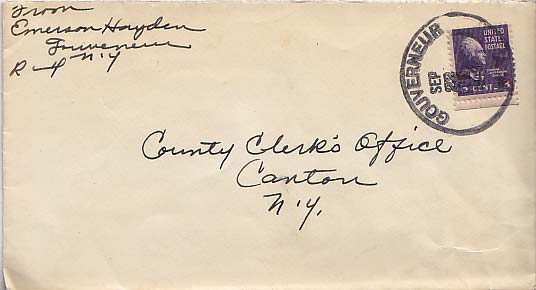 From
Emerson Hayden
Guverneur
R-4 N.Y
GOUVERNEUR
SEP
UNITED
STATES
POSTAGE
3 CENTS
County Clerk's Office
Canton
N.Y.